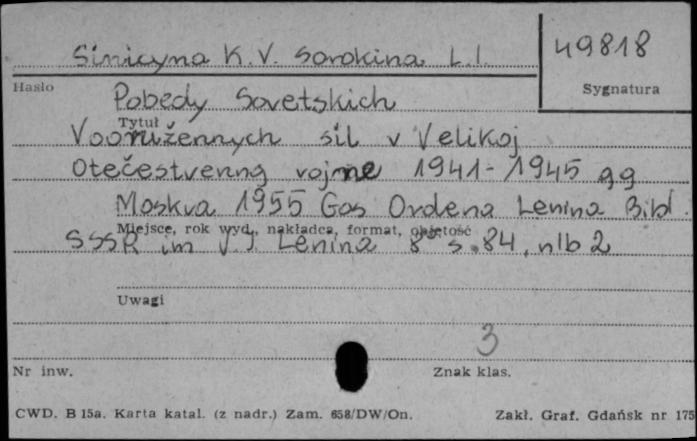 Sinicyna K. V. Sorokina L. I.
49818
Hasło
Sygnatura
Pobedy Sovetskich
Tytuł
Vooružennych sil v Velikoj
Otečestvenng vojne 1941-1945 gg
Moskva 1955 Gos Ordena Lenina Bibl.
Miejsce, rok wyd., nakładca, format, objętość
SSSR im V I Lenina 8° s. 84, nlb 2
Uwagi
3
Nr inw.
Znak klas.
CWD. B 15a. Karta katal. (z nadr.) Zam. 658/DW/On.
Zakł. Graf. Gdańsk nr 175